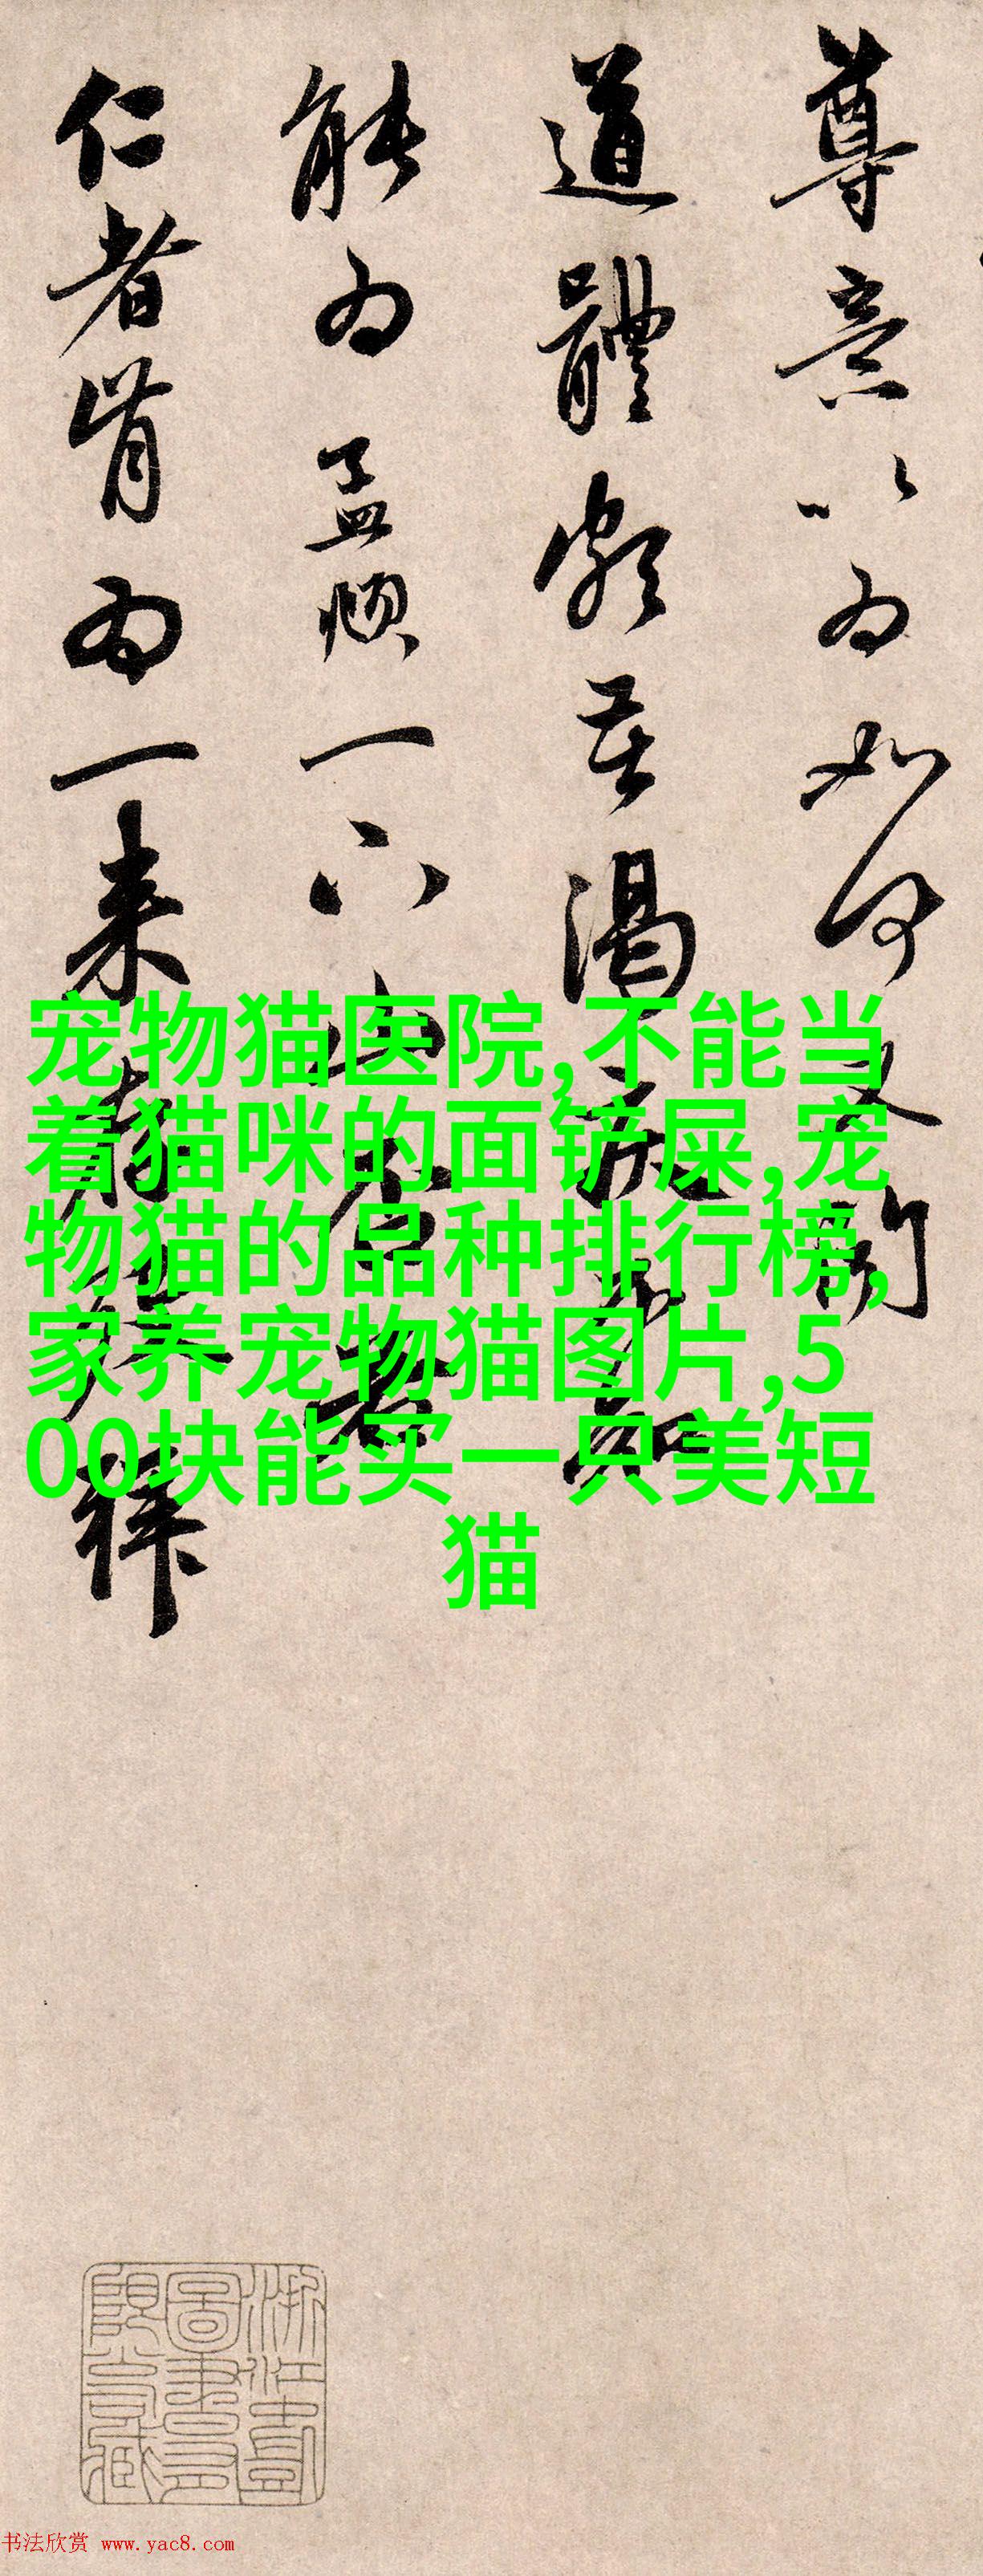 尊意以为如何又闻
道體頗苦渴疾不知
能为孟頫一下
仁者肯为一来
宠物猫医院,不能当
着猫咪的面铲屎,宠
物猫的品种排行榜,
家养宠物猫图片,5
00块能买一只美短
猫
书法欣赏 www.yac8.com